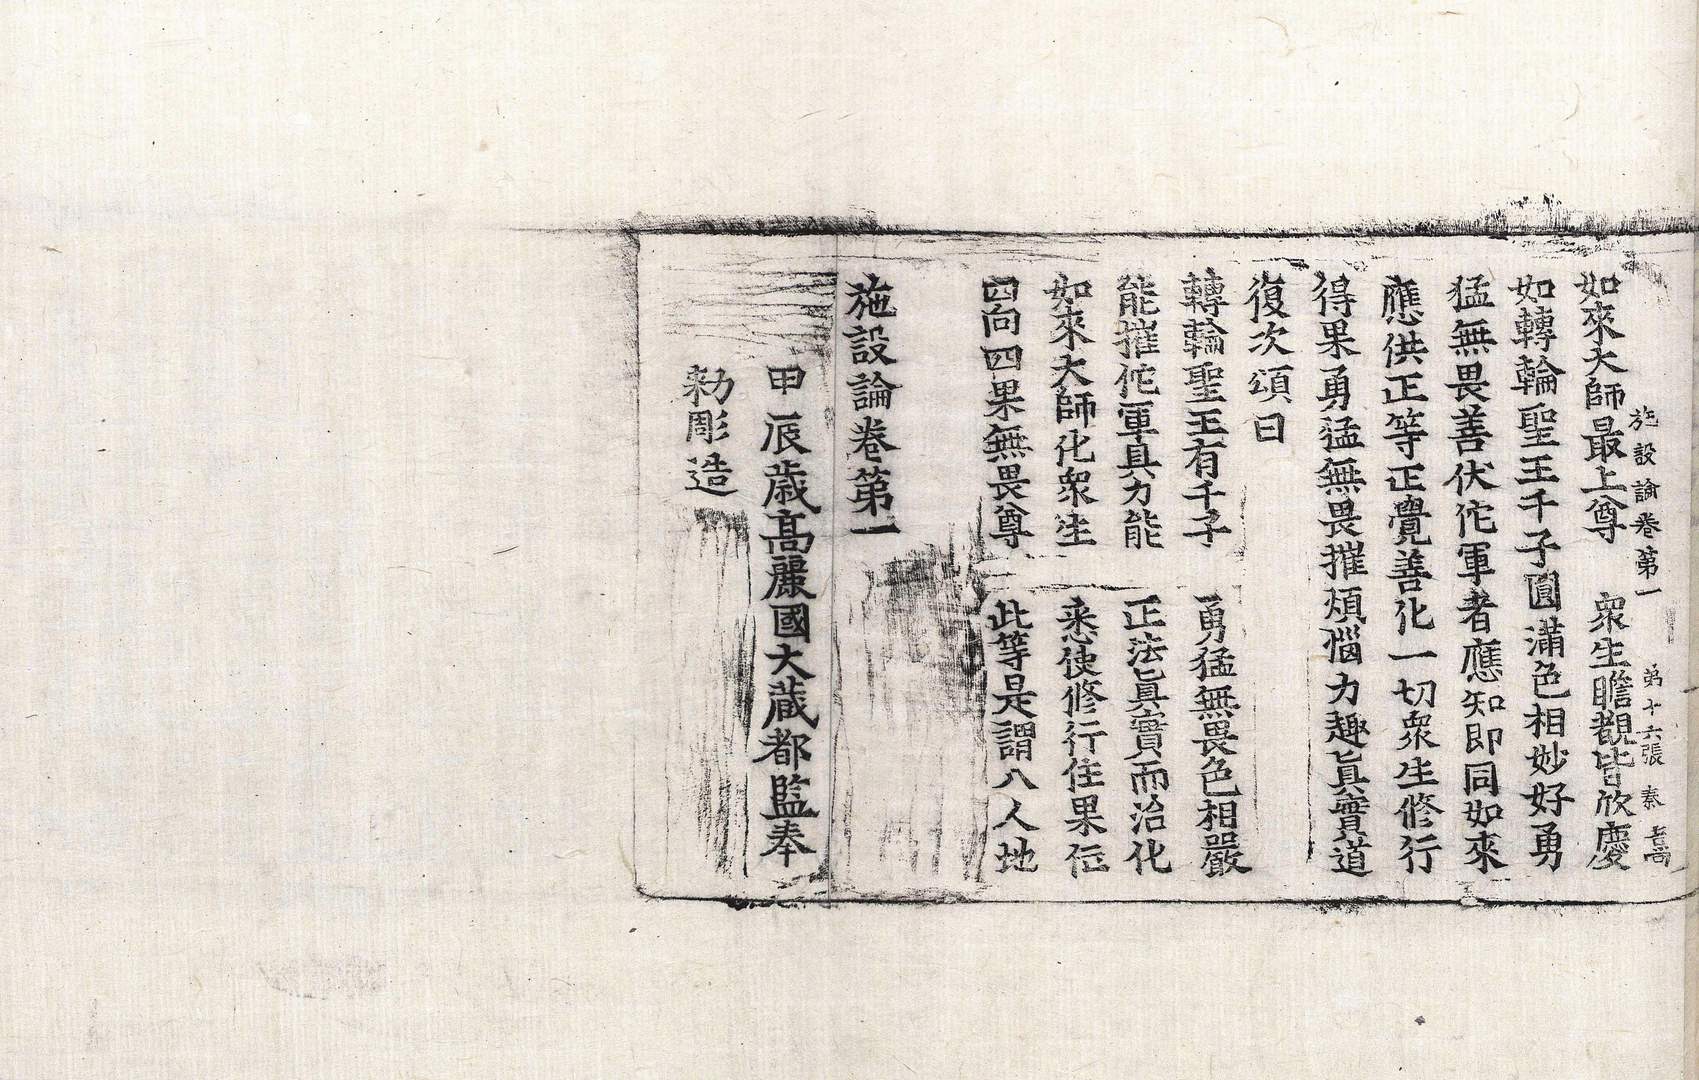 施設論卷第一 第十六張 秦
如來大師最上尊 衆生瞻覩皆欣慶
如轉輪聖王千子圓滿色相妙好勇
猛無畏善伏佗軍者應知即同如來
應供正等正覺善化一切衆生修行
得果勇猛無畏摧煩惱力趣眞實道
復次頌曰
轉輪聖王有千子 勇猛無畏色相嚴
能摧佗軍具力能 正法眞實而治化
如來大師化衆生 悉使修行住果位
四向四果無畏尊 此等是謂八人地
施設論卷第一
甲辰歳高麗國大藏都監奉
勑彫造